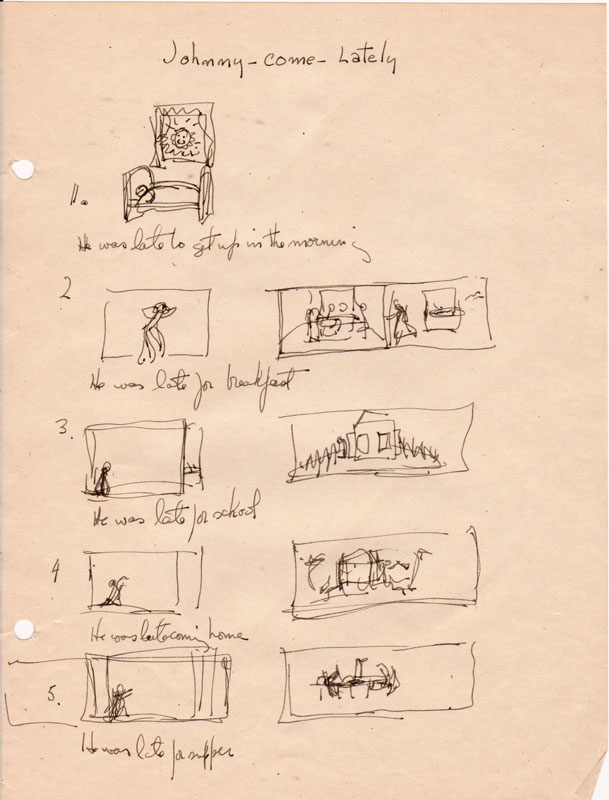 Johnny-come-Lately
1.
He was late to get up in the morning
2
He was late for breakfast
3.
He was late for school
4
He was late coming home
5.
He was late for supper